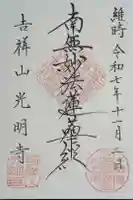 維時 令和七年十一月二日
南無妙法蓮華経
吉祥山 光明寺